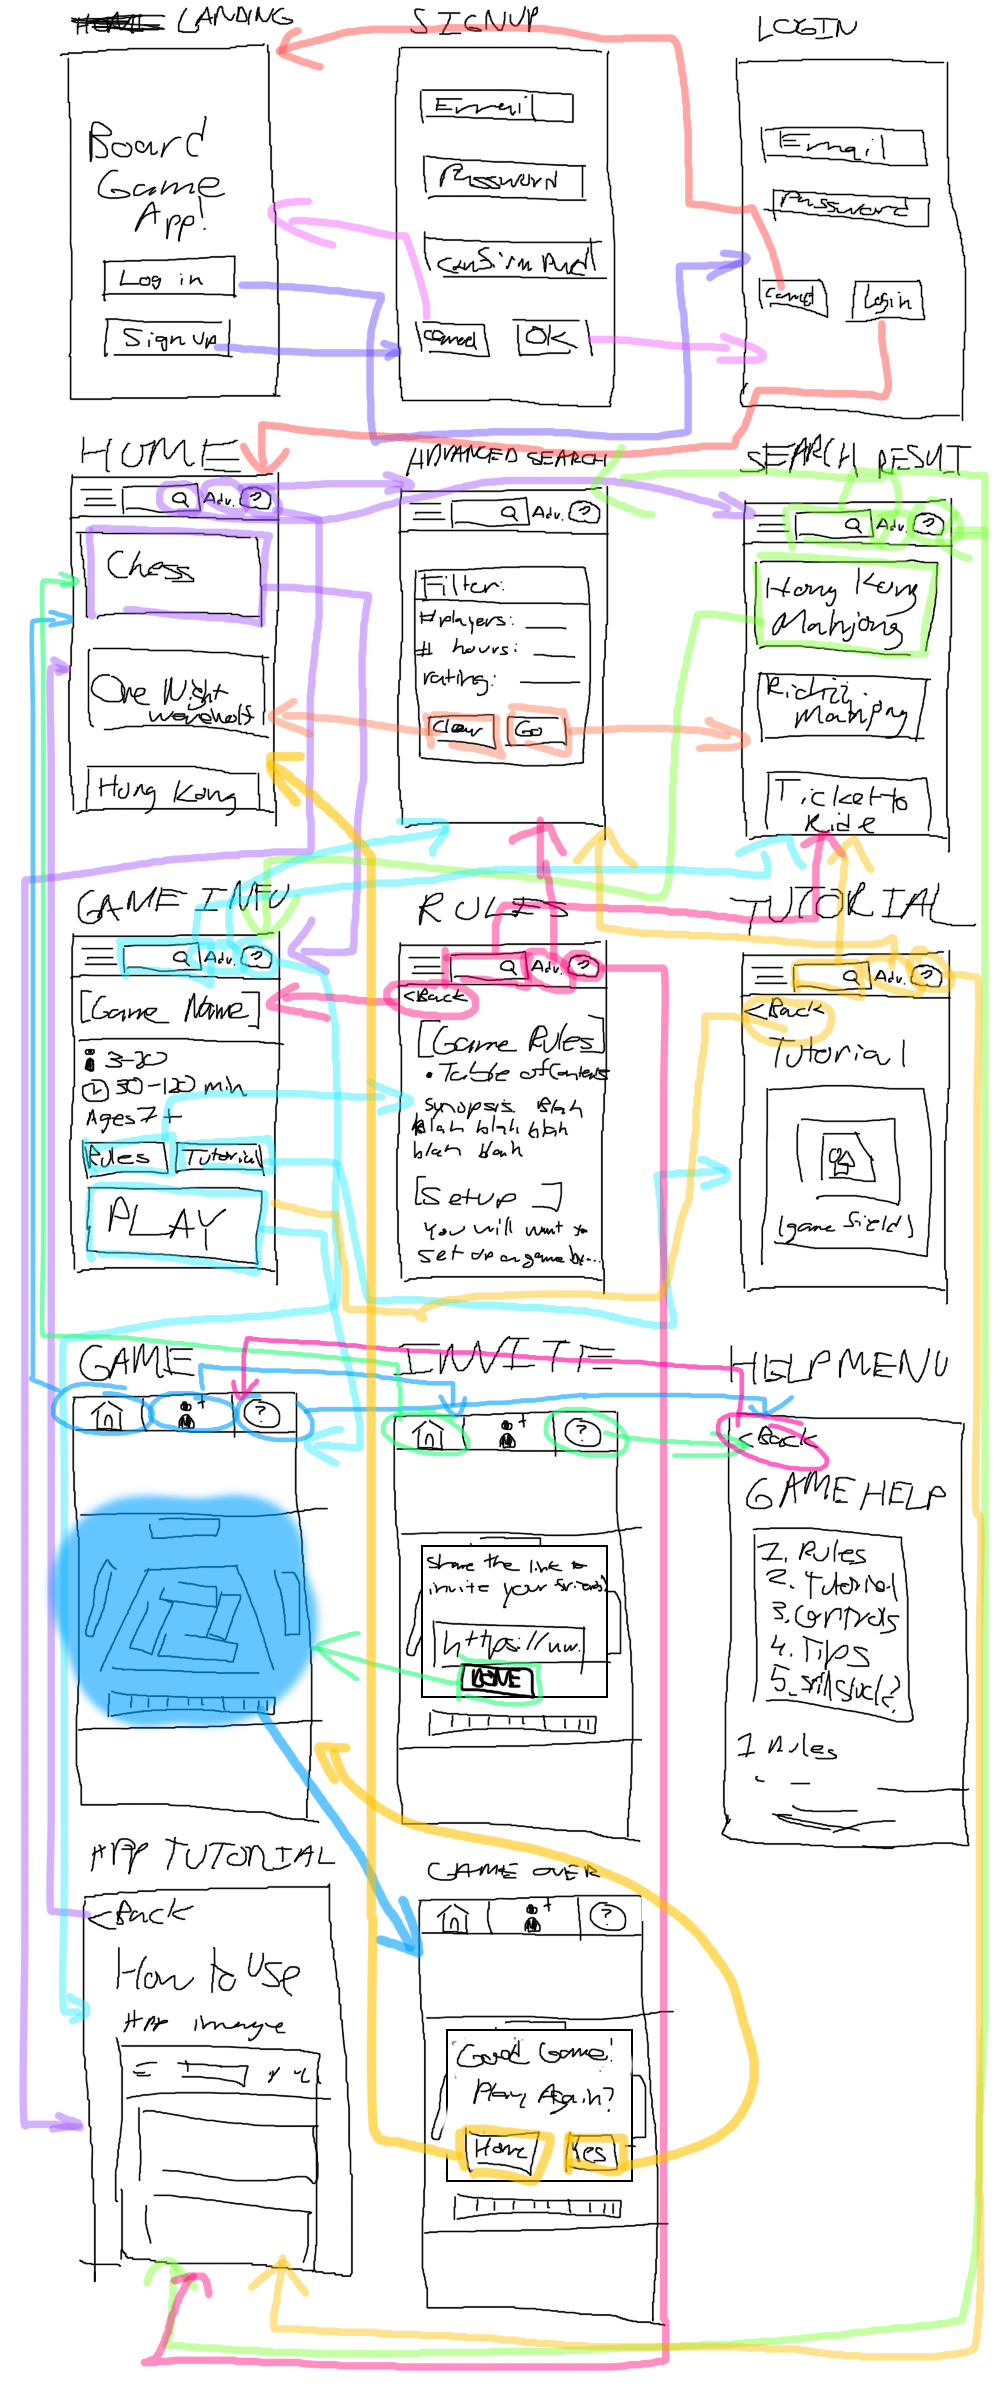 LANDING
Board
Game
App!
Log in
Sign UP
SIGNUP
Email
Password
Confirm Pwd
Cancel
OK
LOGIN
Email
Password
Cancel
Login
HOME
Adv.
?
Chess
One Night
Werewolf
Hong Kong
ADVANCED SEARCH
Adv.
?
Filter:
# players:
# hours:
rating:
Clear
Go
SEARCH RESULT
Adv.
?
Hong Kong
Mahjong
Riichi
Mahjong
Ticket to
Ride
GAME INFO
Adv.
?
[Game Name]
3-20
30-120 min
Ages 7+
Rules
Tutorial
PLAY
RULES
Adv.
?
<Back
[Game Rules]
• Table of Contents
Synopsis Blah
Blah blah blah
blah blah
[Setup ]
You will want to
set up a game by...
TUTORIAL
Adv.
?
<Back
Tutorial
(game field)
GAME
+
?
INVITE
+
?
Share the link to
invite your friends!
https://ww.
DONE
HELP MENU
<Back
GAME HELP
1. Rules
2. Tutorial
3. Controls
4. Tips
5. Still stuck?
1 Rules
APP TUTORIAL
<Back
How to Use
App image
GAME OVER
+
?
Good Game!
Play Again?
Home
Yes